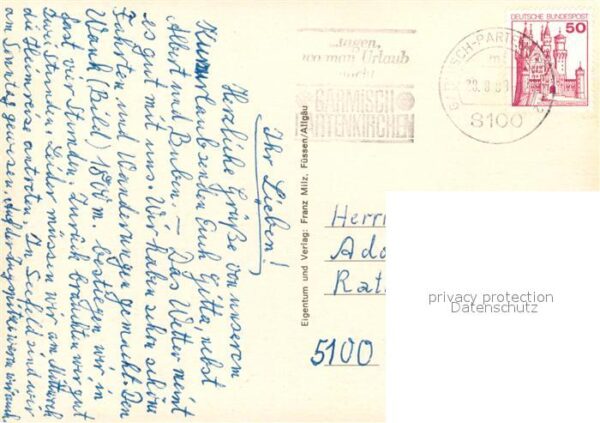 Ihr Lieben!
Herzliche Grüße von unserem
Kururlaub senden Euch Gitta, nebst
Albert und Buben – Das Wetter meint
es gut mit uns. Wir haben schon schöne
Fahrten und Wanderungen gemacht. Den
Wank (Bild) 1800 m. bestiegen wir in
fast vier Stunden. Zurück brauchten wir gut
zwei Stunden. Leider müssen wir am Mittwoch
die Heimreise antreten. In Seefeld sind wir
am Sonntag gewesen. Auf der Zugspitze waren wir auch
Eigentum und Verlag: Franz Milz, Füssen/Allgäu
sagen,
wo man Urlaub
macht
GARMISCH
PARTENKIRCHEN
8100
DEUTSCHE BUNDESPOST
50
Herrn
Ado
Rat
5100
privacy protection
Datenschutz